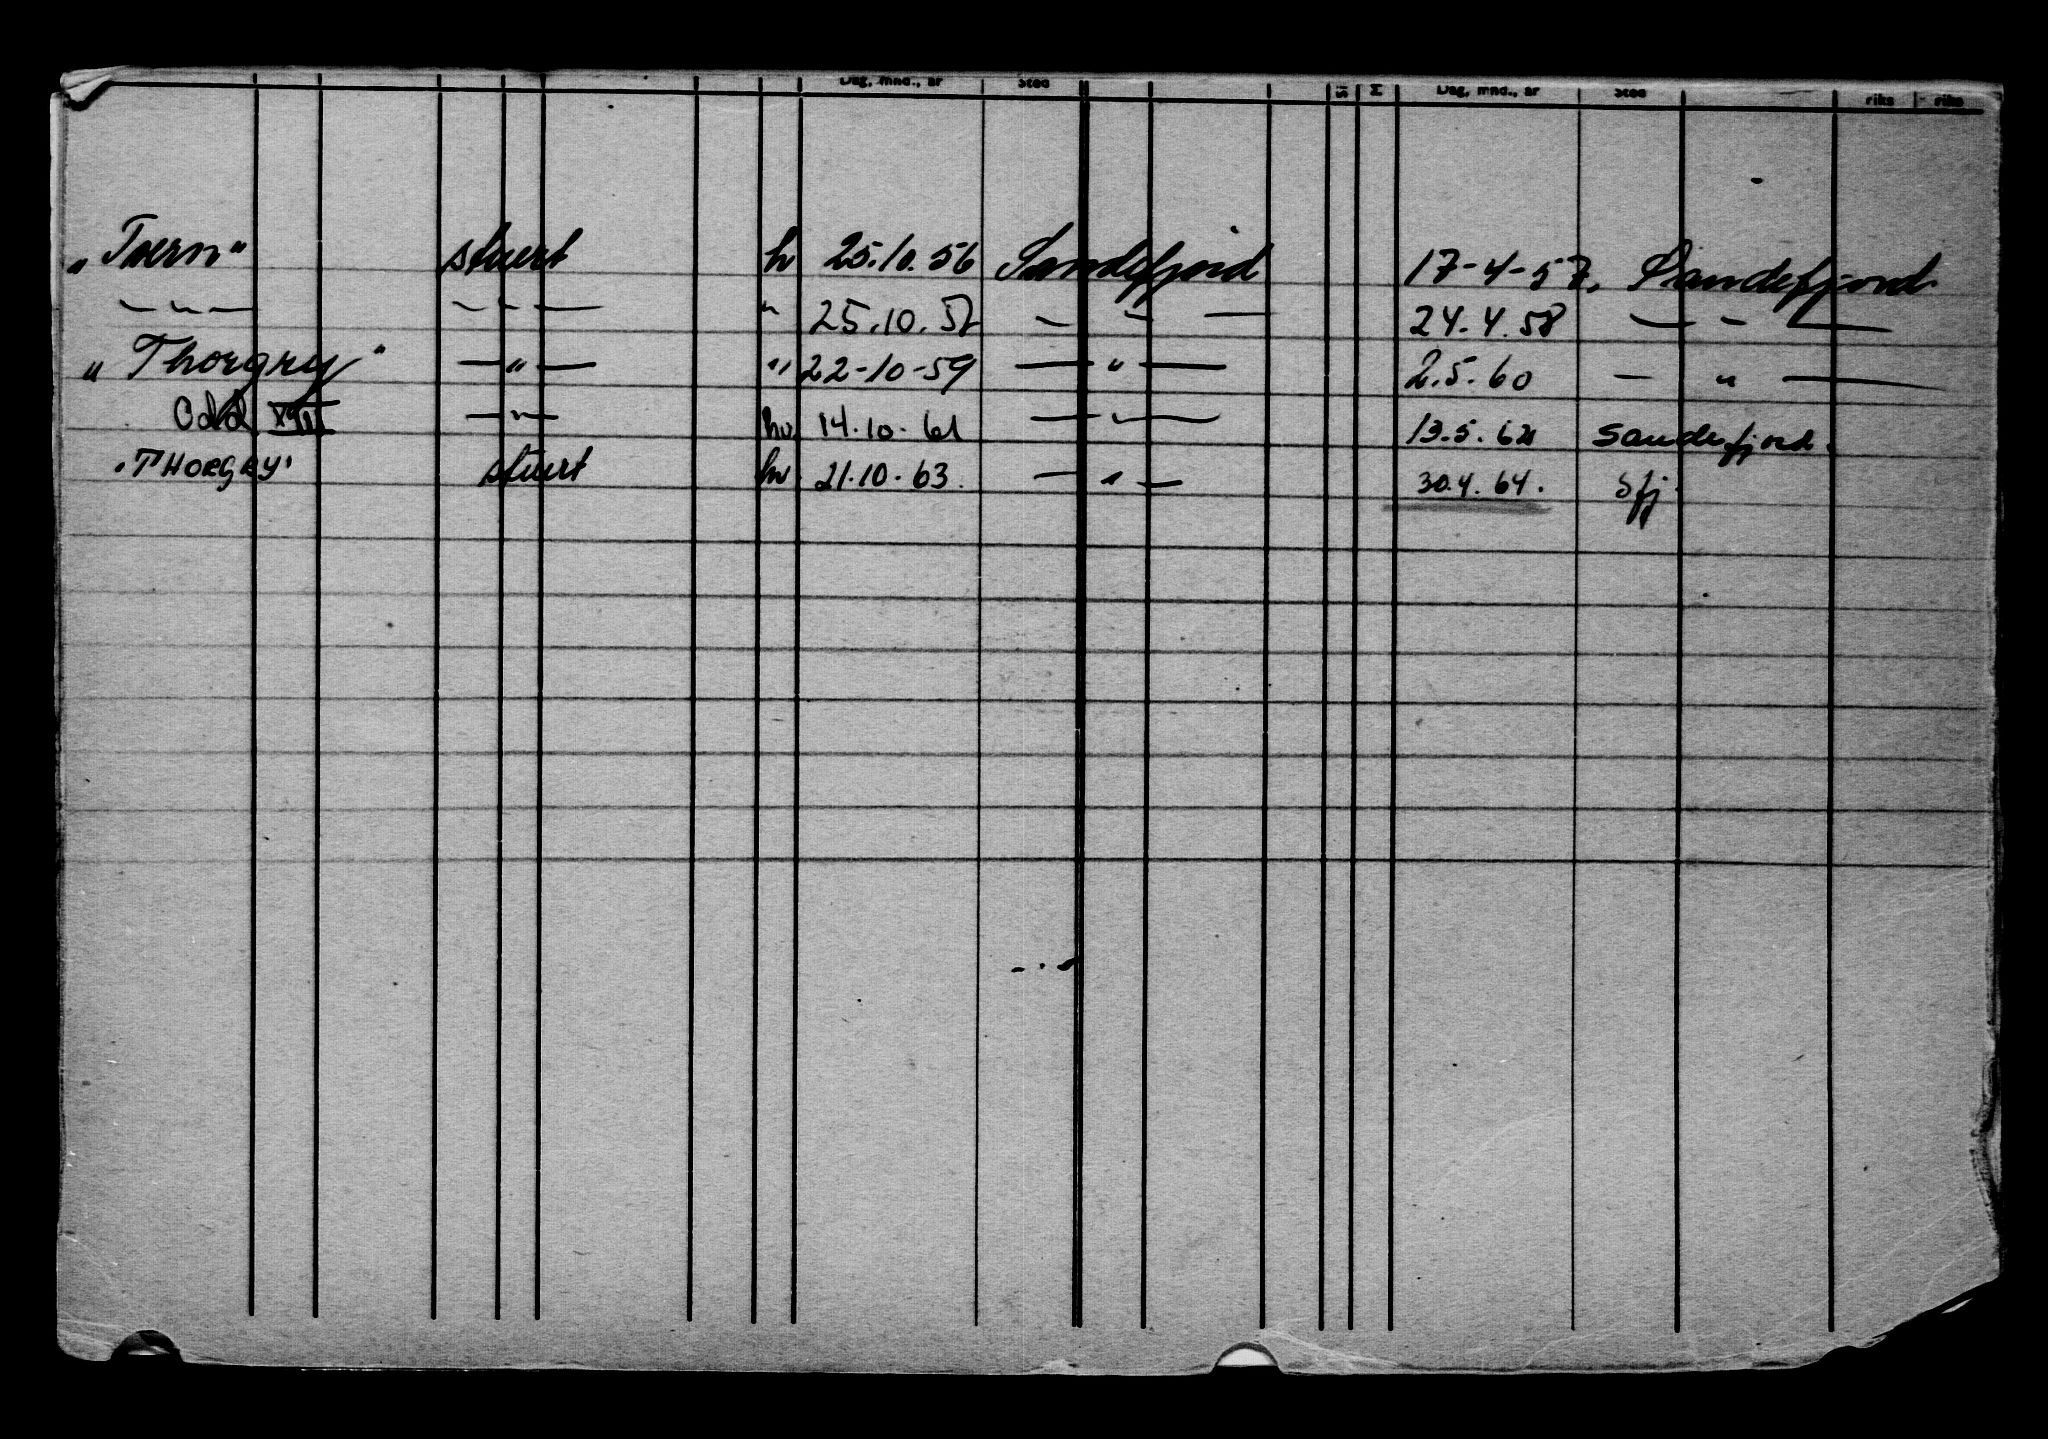 Dag, mnd., år Sted SI M Dag, mnd., år Sted riks riks
„Tœrn" stuert h 25.10.56 Sandefjord 17-4-57. Sandefjord
— " — — " — " 25.10.57 — " — 24.4.58 — " —
„Thorgry" — " — " 22-10-59 — " — 2.5.60 — " —
Odd XVIII — " — hv 14.10.61 — " — 13.5.62 Sandefjord.
'THORGRY' stuert hv 21.10.63. — " — 30.4.64. Sfj.